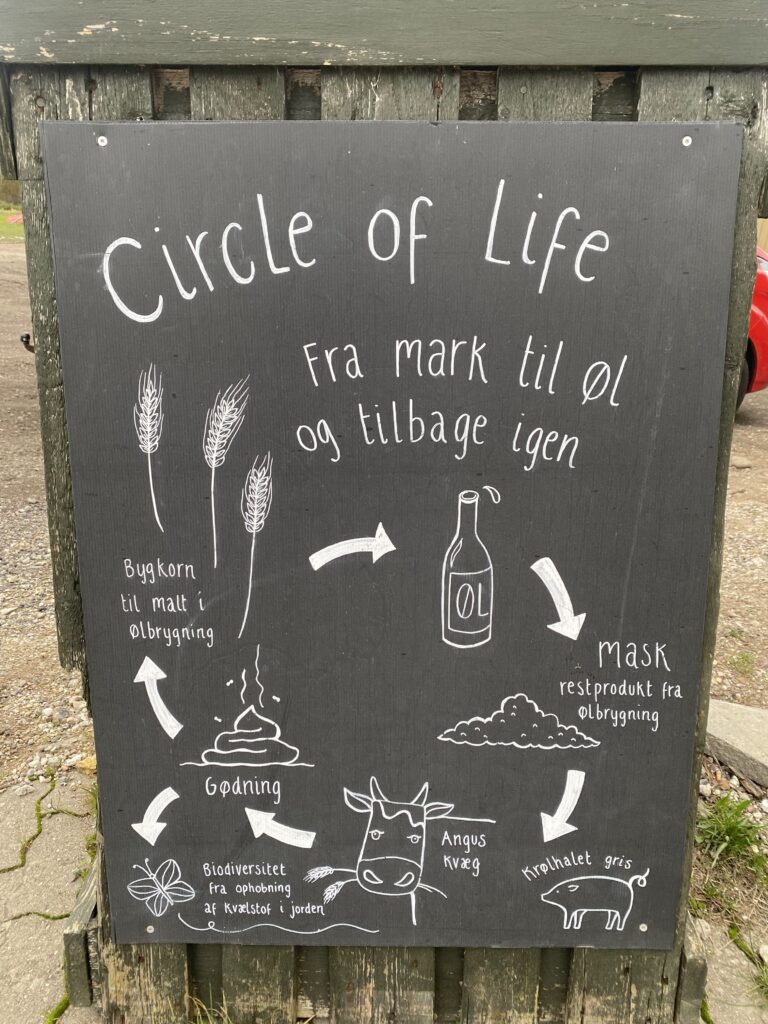 Circle of Life
Fra mark til øl
og tilbage igen
Bygkorn
til malt i
Ølbrygning
ØL
Mask
restprodukt fra
Ølbrygning
Gødning
Angus
Kvæg
Krølhalet gris
Biodiversitet
fra ophobning
af kvælstof i jorden